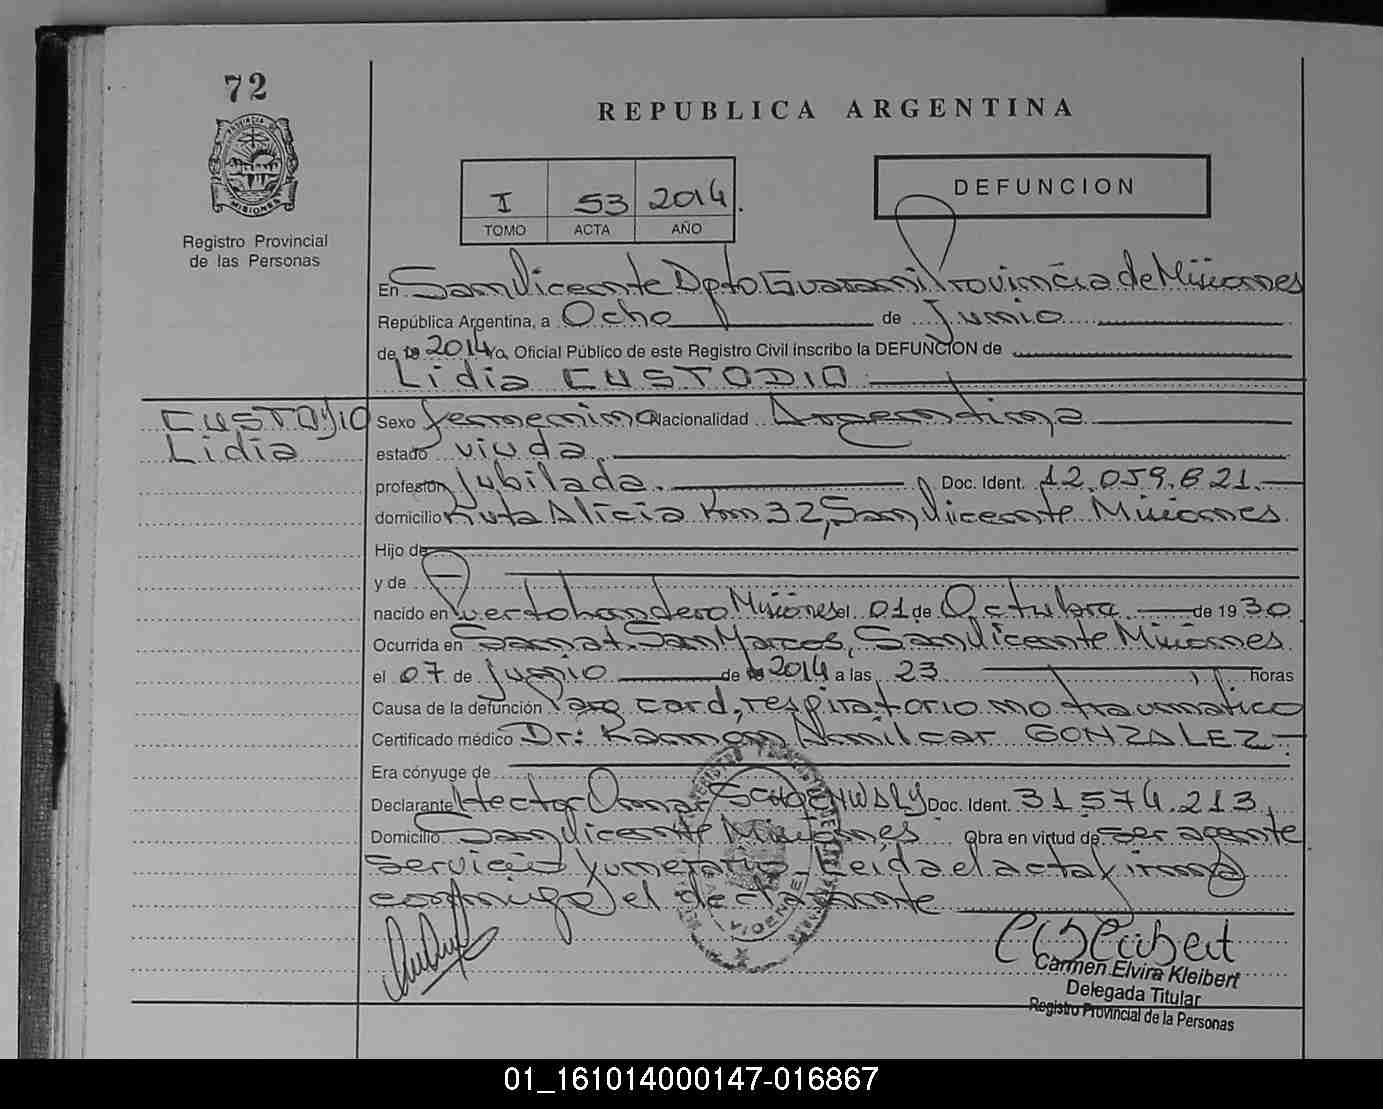 72
PROVINCIA DE
MISIONES
Registro Provincial
de las Personas
REPUBLICA ARGENTINA
I 53 2014.
TOMO ACTA AÑO
DEFUNCION
En San Vicente Dpto Guarani Provincia de Misiones
República Argentina, a Ocho de Junio
de 19 2014 yo, Oficial Público de este Registro Civil inscribo la DEFUNCION de
Lidia CUSTODIO
CUSTODIO
Lidia
Sexo femenino Nacionalidad Argentina
estado viuda
profesión jubilada. Doc. Ident. 12.059.821.
domicilio Ruta Alicia Km 32, San Vicente Misiones
Hijo de
y de
nacido en Puerto Misiones el 01 de Octubre de 1930
Ocurrida en Sanat. San Marcos, San Vicente Misiones
el 07 de junio de 19 2014 a las 23 horas
Causa de la defunción Paro card, respiratorio no traumatico
Certificado médico Dr: Ramon Amilcar GONZALEZ
Era cónyuge de
Declarante Hector Omar Doc. Ident. 31574.213
Domicilio San Vicente Misiones Obra en virtud de ser agente
Servicio funerario. Leida el acta firma
conmigo el declarante
Carmen Elvira Kleibert
Delegada Titular
Registro Provincial de la Personas
01_161014000147-016867